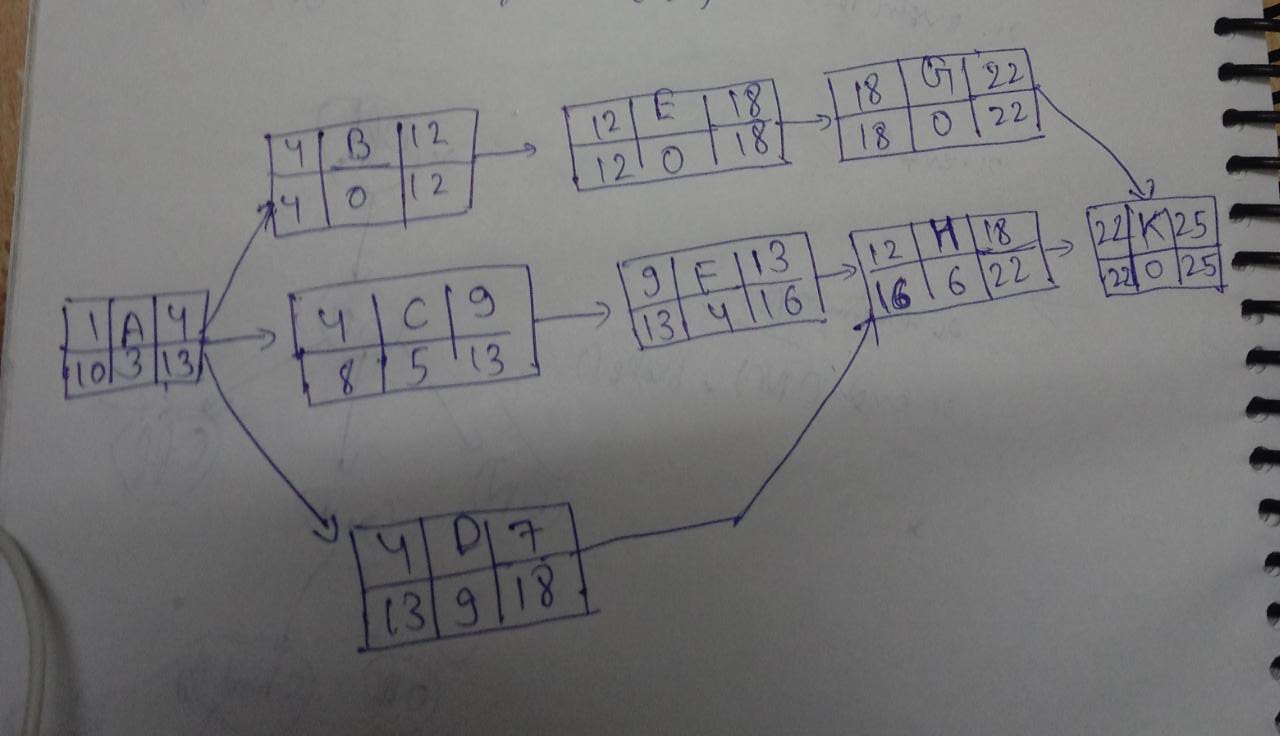 4 B 12
4 0 12
12 E 18
12 0 18
18 G 22
18 0 22
1 A 4
10 3 13
4 C 9
8 5 13
9 F 13
13 4 16
12 H 18
16 6 22
22 K 25
22 0 25
4 D 7
13 9 18